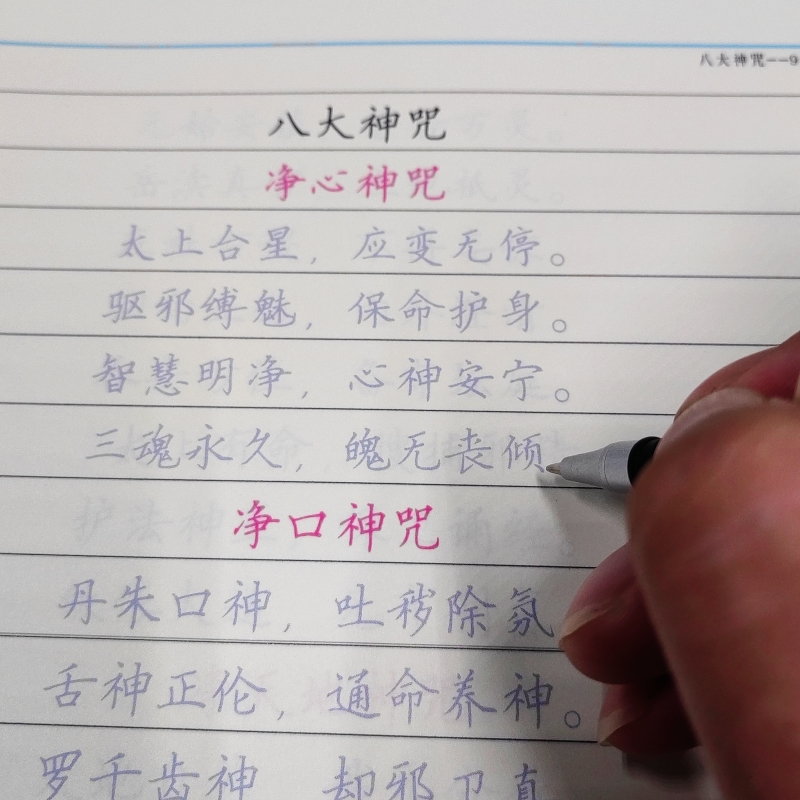 八大神咒--9
八大神咒
净心神咒
太上台星，应变无停。
驱邪缚魅，保命护身。
智慧明净，心神安宁。
三魂永久，魄无丧倾
净口神咒
丹朱口神，吐秽除氛
舌神正伦，通命养神。
罗千齿神 却邪卫真